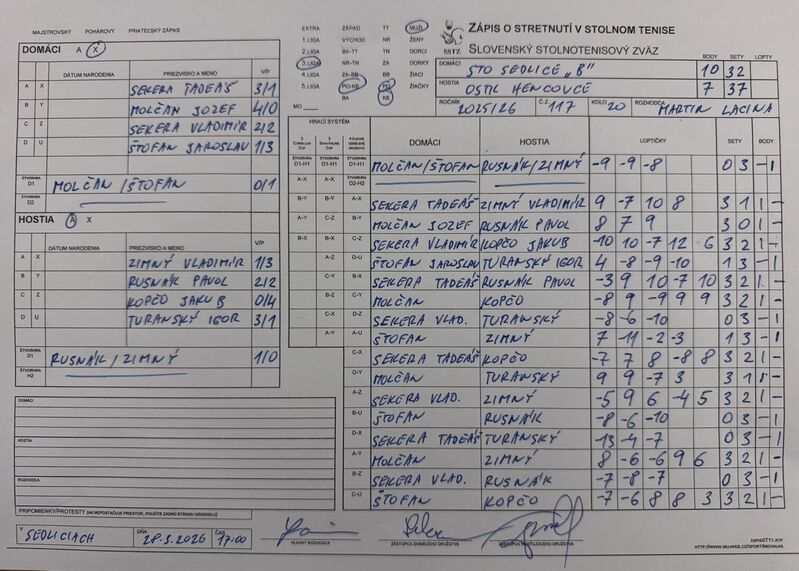 MAJSTROVSKÝ POHÁROVÝ PRIATEĽSKÝ ZÁPAS
DOMÁCI A X
DÁTUM NARODENIA PRIEZVISKO A MENO V/P
A X SEKERA TADEÁŠ 3/1
B Y MOLČAN JOZEF 4/0
C Z SEKERA VLADIMÍR 2/2
D U ŠTOFAN JAROSLAV 1/3
ŠTVORHRA D1 MOLČAN/ŠTOFAN 0/1
ŠTVORHRA D2
HOSTIA A X
DÁTUM NARODENIA PRIEZVISKO A MENO V/P
A X ZIMNÝ VLADIMÍR 1/3
B Y RUSNÁK PAVOL 2/2
C Z KOPČO JAKUB 0/4
D U TURANSKÝ IGOR 3/1
ŠTVORHRA D1 RUSNÁK/ZIMNÝ 1/0
ŠTVORHRA H2
DOMÁCI
HOSTIA
ROZHODCA
PRIPOMIENKY/PROTESTY (AK NEPOSTAČUJE PRIESTOR, POUŽITE ZADNÚ STRANU ORIGINÁLU)
EXTRA ZÁPAD TT MUŽI
1.LIGA VÝCHOD NR ŽENY
2.LIGA BA-TT TN DORCI
3.LIGA NR-TN ZA DORKY
4.LIGA ZA-BB BB ŽIACI
5.LIGA PO-KE PO ŽIAČKY
BA KE
MO
SSTZ
ZÁPIS O STRETNUTÍ V STOLNOM TENISE
SLOVENSKÝ STOLNOTENISOVÝ ZVÄZ
BODY SETY LOPTY
DOMÁCI STO SEDLICE „B" 10 32
HOSTIA OSTK HENCOVCE 7 37
ROČNÍK 2025/26 Č.Z. 117 KOLO 20 ROZHODCA MARTIN LACINA
HRACÍ SYSTÉM
DOMÁCI HOSTIA LOPTIČKY SETY BODY
D1-H1 D1-H1 D1-H1 MOLČAN/ŠTOFAN RUSNÁK/ZIMNÝ -9 -9 -8 0 3 - 1
A-X D2-H2
B-Y B-Y A-X SEKERA TADEÁŠ ZIMNÝ VLADIMÍR 9 -7 10 8 3 1 1 -
A-Y C-Z B-Y MOLČAN JOZEF RUSNÁK PAVOL 8 7 9 3 0 1 -
B-X B-X C-Z SEKERA VLADIMÍR KOPČO JAKUB -10 10 -7 12 6 3 2 1 -
A-Z D-U ŠTOFAN JAROSLAV TURANSKÝ IGOR 4 -8 -9 -10 1 3 - 1
C-Y B-X SEKERA TADEÁŠ RUSNÁK PAVOL -3 9 10 -7 10 3 2 1 -
B-Z C-Y MOLČAN KOPČO -8 9 -9 9 9 3 2 1 -
C-X D-Z SEKERA VLAD. TURANSKÝ -8 -6 -10 0 3 - 1
A-Y A-U ŠTOFAN ZIMNÝ 7 -11 -2 -3 1 3 - 1
C-X SEKERA TADEÁŠ KOPČO -7 7 8 -8 8 3 2 1 -
D-Y MOLČAN TURANSKÝ 9 9 -7 3 3 1 1 -
A-Z SEKERA VLAD. ZIMNÝ -5 9 6 -4 5 3 2 1 -
B-U ŠTOFAN RUSNÁK -8 -6 -10 0 3 - 1
D-X SEKERA TADEÁŠ TURANSKÝ -13 -4 -7 0 3 - 1
A-Y MOLČAN ZIMNÝ 8 -6 -6 9 6 3 2 1 -
B-Z SEKERA VLAD. RUSNÁK -7 -8 -7 0 3 - 1
C-U ŠTOFAN KOPČO -7 -6 8 8 3 3 2 1 -
V SEDLICIACH DŇA 28.3.2026 ČAS 17:00
HLAVNÝ ROZHODCA
ZÁSTUPCA DOMÁCEHO DRUŽSTVA
ZÁSTUPCA HOSŤUJÚCEHO DRUŽSTVA
ZAPISST11.RTF
HTTP://WWW.MUJWEB.CZ/SPORT/MICHALKA